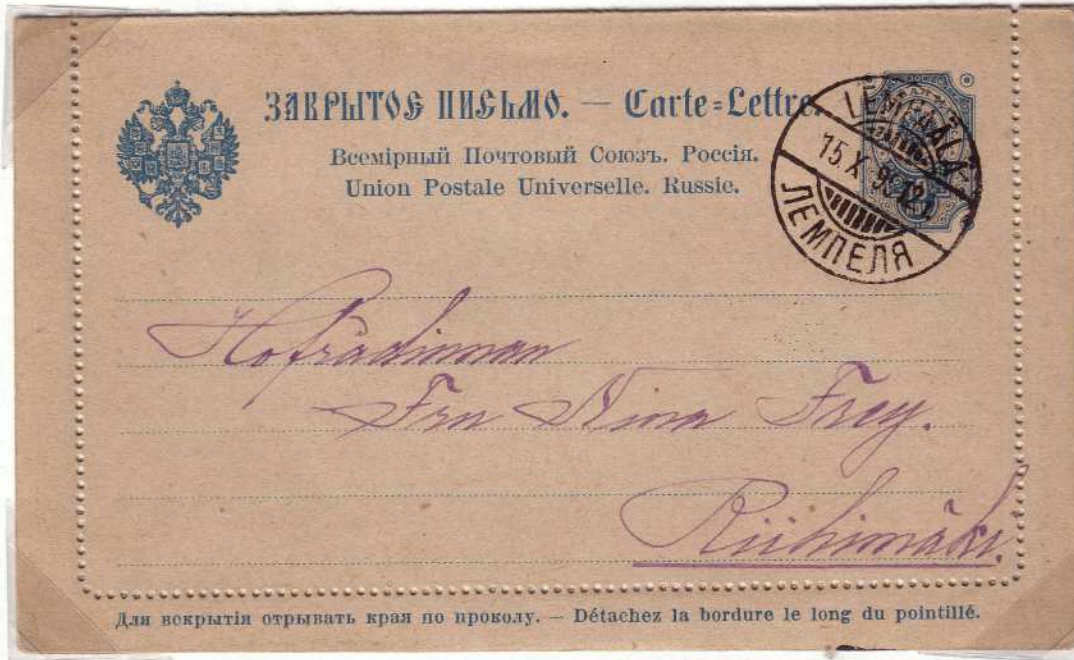 ЗАКРЫТОЕ ПИСЬМО. — Carte-Lettre.
Всемірный Почтовый Союзъ. Россія.
Union Postale Universelle. Russie.
LEMPÄÄLÄ
15.X.98 12
ЛЕМПЕЛЯ
Hofrådinnan
Fru Nina Frey.
Riihimäki.
Для вскрытія отрывать края по проколу. — Détachez la bordure le long du pointillé.